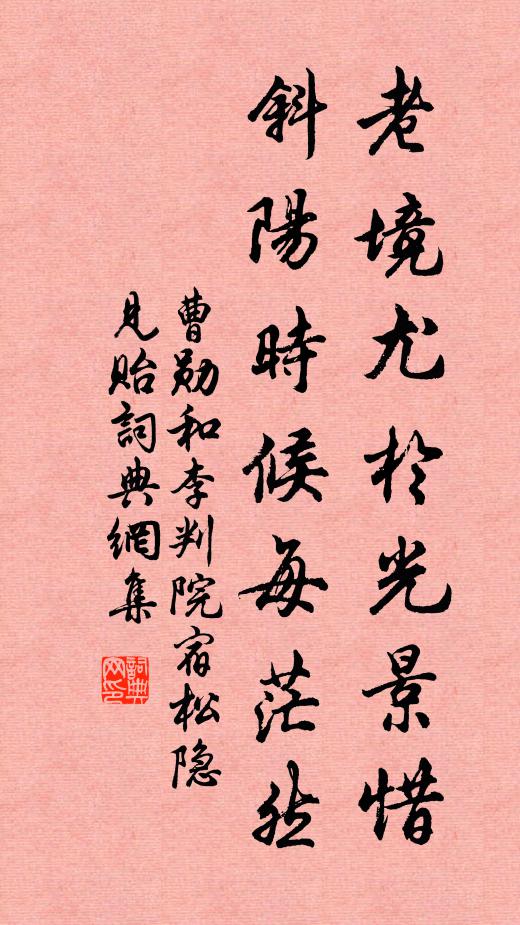 老境尤於光景惜
斜陽時候每茫然
曹勋和李判院宿松隐
見貽詞典網集
詞典
网印